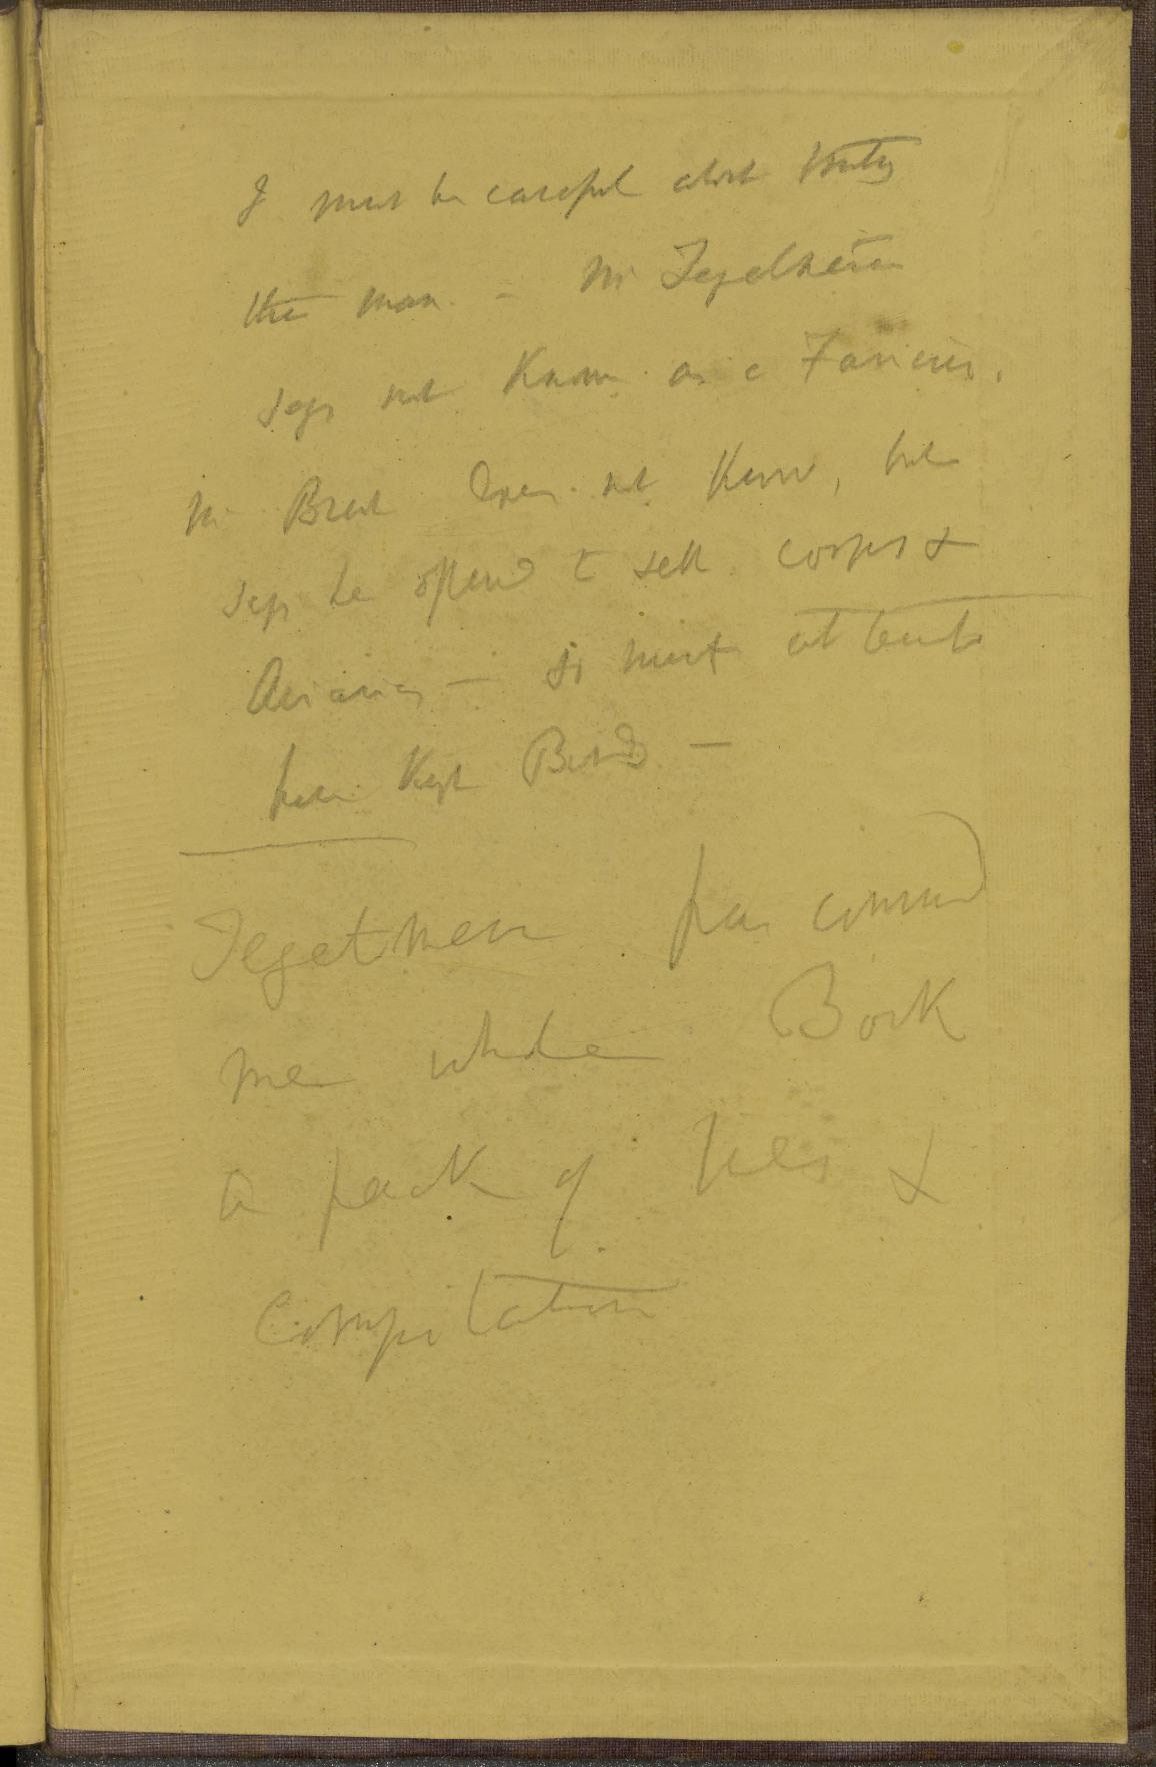 I must be careful about trusting
this man. — Mr Tegetmeier
says not known as a Fancier.
Mr Brent does not know, but
says he offered to sell corpses &
Aviaries — so must at least
have kept Birds —
Tegetmeier has convinced
me whole Book
a pack of lies &
compilation